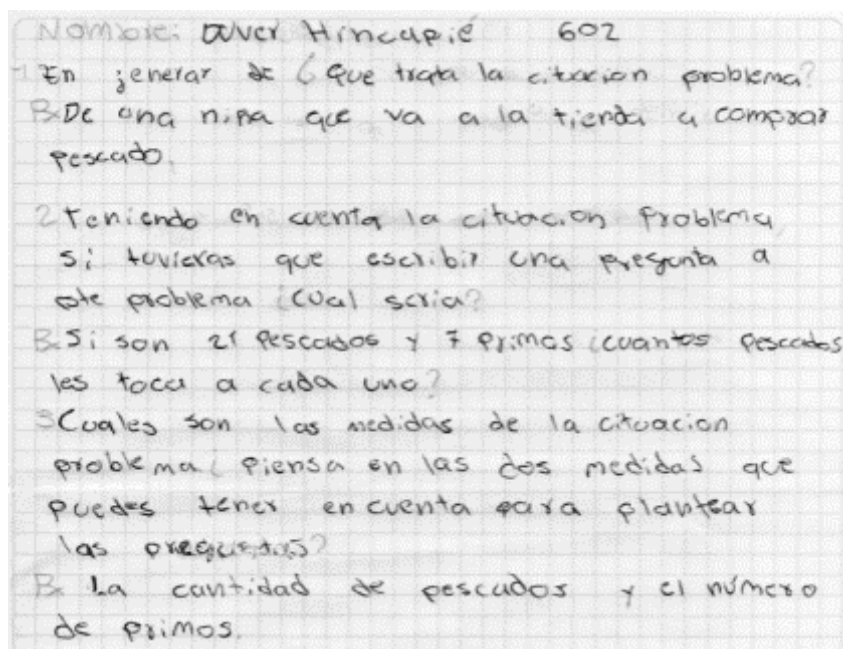 Nombre: Duver Hincapié 602
1. En jenerar de ¿que trata la cituacion problema?
R. De una niña que va a la tienda a comprar
pescado.
2 Teniendo en cuenta la cituacion problema
si tuvieras que escribir una pregunta a
este problema ¿cual seria?
R. Si son 21 pescados y 7 primos ¿cuantos pescados
les toca a cada uno?
3 Cuales son las medidas de la cituacion
problema ¿ piensa en las dos medidas que
puedes tener en cuenta para plantear
las preguntas?
R. La cantidad de pescados y el número
de primos.